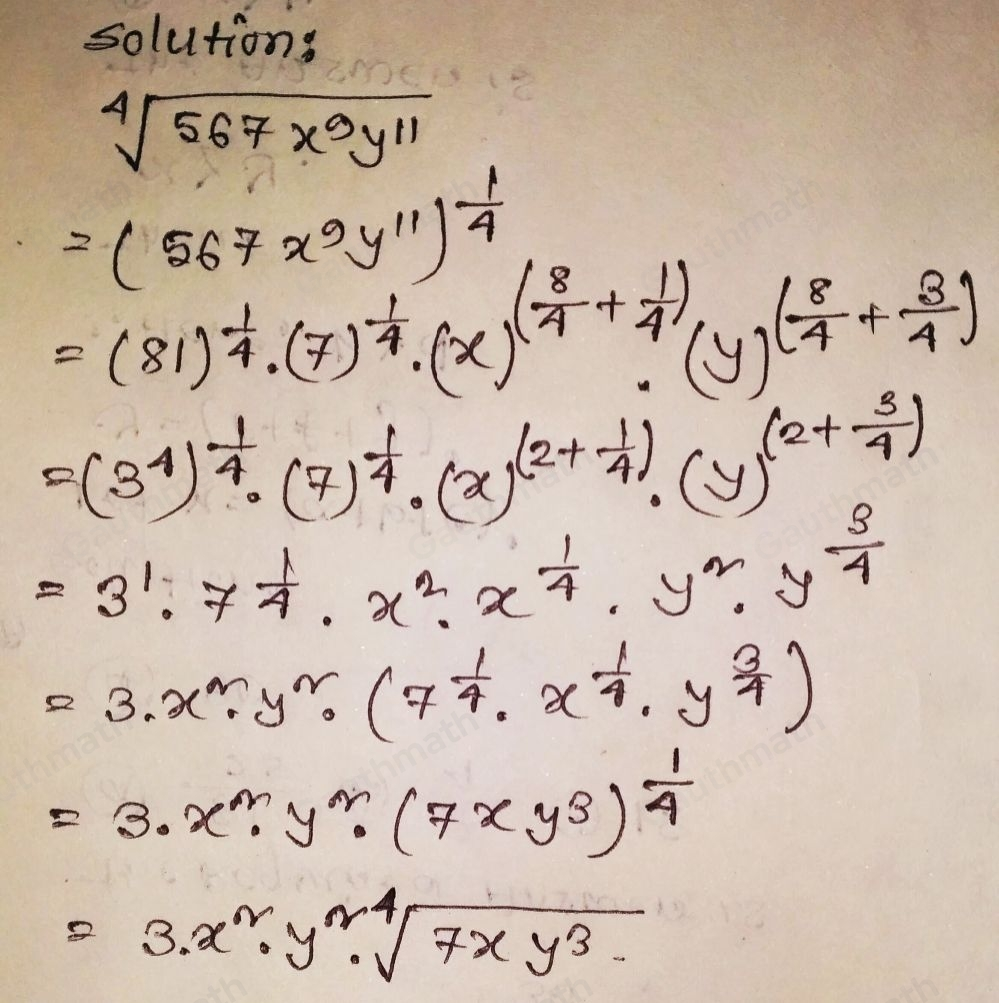 Solution:
∜(567 x⁹y¹¹)
= (567 x⁹y¹¹)^(1/4)
= (81)^(1/4) . (7)^(1/4) . (x)^(8/4 + 1/4) . (y)^(8/4 + 3/4)
= (3⁴)^(1/4) . (7)^(1/4) . (x)^(2 + 1/4) . (y)^(2 + 3/4)
= 3¹ . 7^(1/4) . x² . x^(1/4) . y² . y^(3/4)
= 3 . x² . y² . (7^(1/4) . x^(1/4) . y^(3/4))
= 3 . x² . y² . (7xy³)^(1/4)
= 3 . x² . y² . ∜(7xy³)